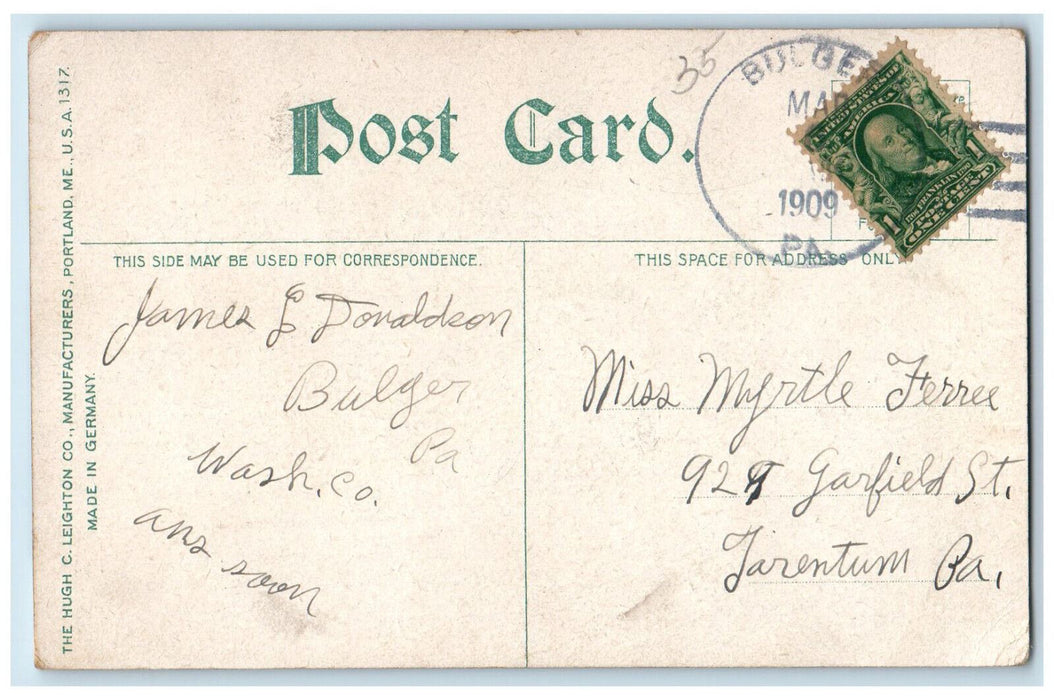 Post Card.
35
BULGER
MA
1909
PA.
UNITED STATES OF
AMERICA
1
1
FRANKLIN
ONE CENT
THIS SIDE MAY BE USED FOR CORRESPONDENCE.
THIS SPACE FOR ADDRESS ONLY
James E Donaldson
Bulger
Pa
Wash. Co.
ans soon
Miss Myrtle Ferree
929 Garfield St.
Tarentum Pa.
THE HUGH C. LEIGHTON CO., MANUFACTURERS, PORTLAND, ME., U.S.A. 1317.
MADE IN GERMANY.